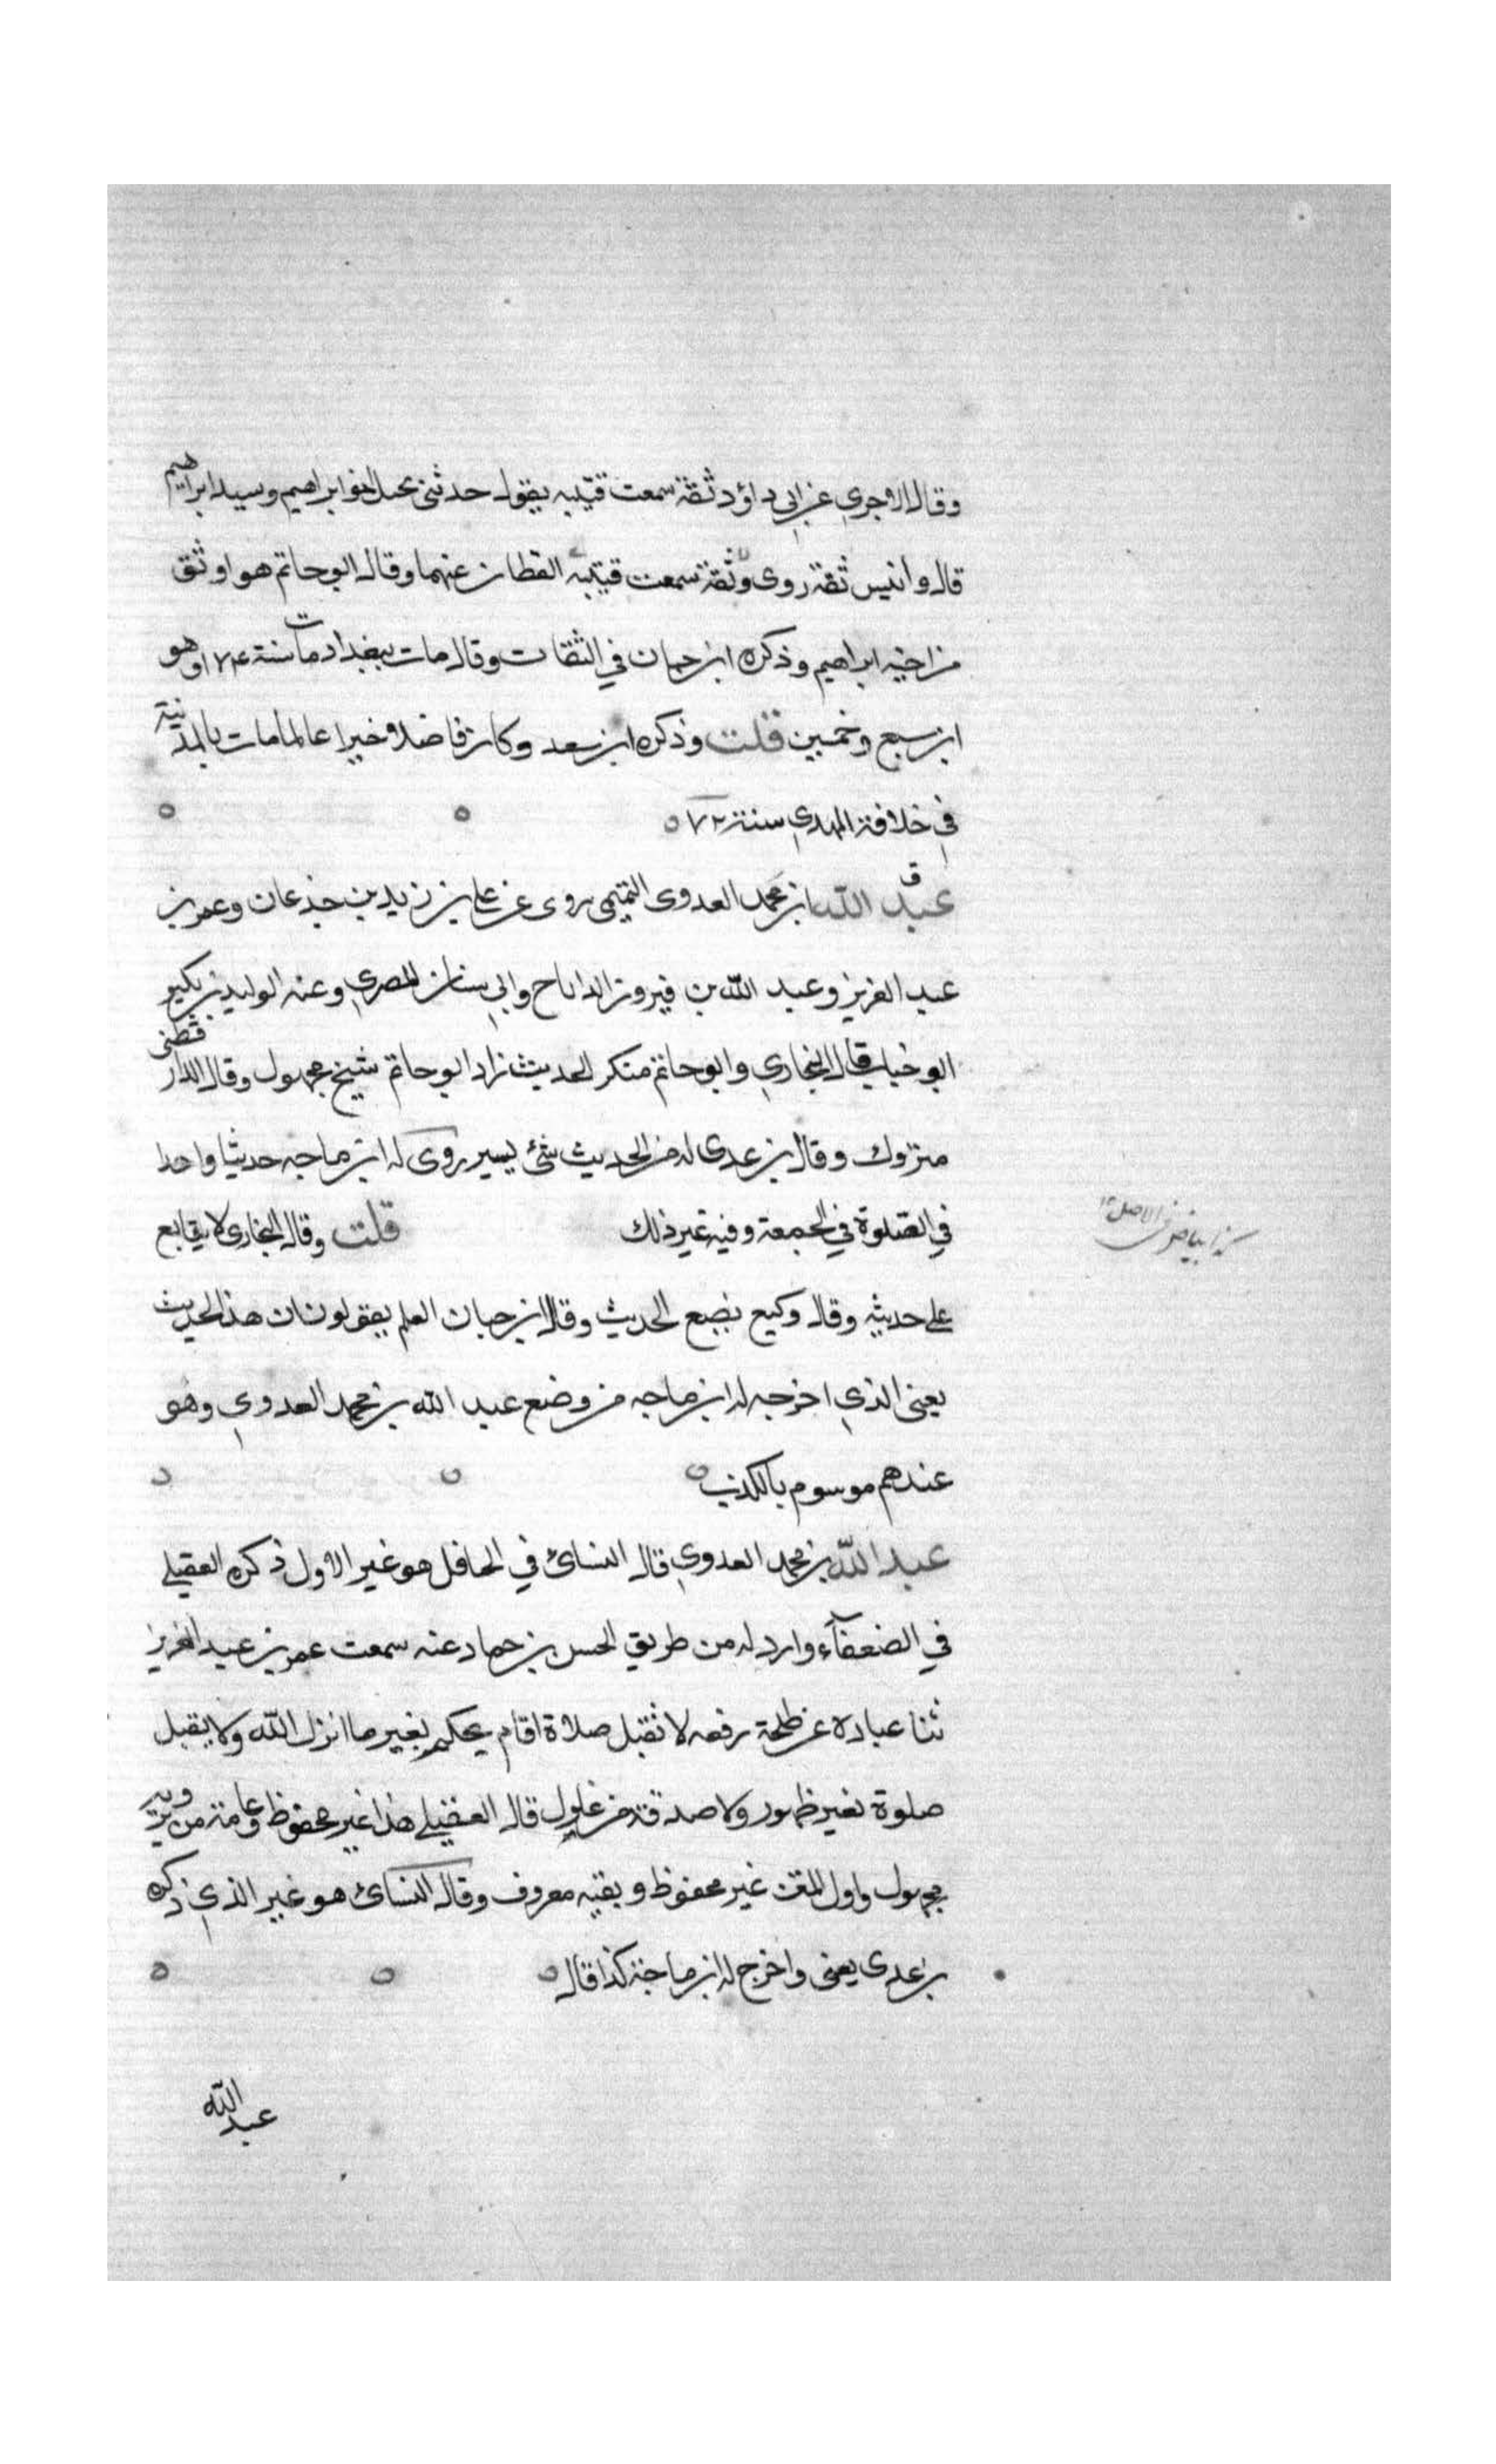 وقال الاجري عن ابي داؤد ثقة سمعت قتيبه يقول حدثني محمل اخو ابراهيم وسيد ابراهيم
قال وانيس ثقة روى وثقة سمعت قتيبه القطان عنهما وقال ابو حاتم هو اوثق
من اخيه ابراهيم وذكره ابن حبان في الثقات وقال مات ببغداد مات سنة ١٧٤ وهو
ابن سبع وخمسين قلت وذكره ابن سعد وكان فاضلا خيرا عالما مات بالمدنية
في خلافة المهدي سنة ٧٢
عبد الله ابن محمد العدوى التميمى روى عن على بن زيد بن جذعان وعمر بن
عبد العزيز وعبد الله بن فيروز الداناح وابي سنان المصري وعنه الوليد بن بكير
ابو خباب قال البخاري وابو حاتم منكر الحديث زاد ابو حاتم شيخ مجهول وقال الدارقطنى
متروك وقال بن عدى له من الحديث شئ يسير روى له ابن ماجه حديثا واحدا
في الصلوة في الجمعة وفيه غير ذلك قلت وقال البخارى لا يتابع
كذا بياض في الاصل ١٢
على حديثه وقال وكيع يضع الحديث وقال ابن حبان العلم يقولون ان هذا الحديث
يعنى الذي اخرجه له ابن ماجه من وضع عبد الله بن محمد العدوي وهو
عندهم موسوم بالكذب
عبد الله بن محمد العدوي قال النسائ في الحافل هو غير الاول ذكره العقيلے
في الضعفآء وارد له من طريق الحسن بن حماد عنه سمعت عمر بن عبد العزيز
ثنا عبادة عن طلحة رفعه لا تقبل صلاة اقام يحكم بغير ما انزل الله ولا يقبل
صلوة بغير طهور ولا صدقة من غلول قال العقيلے هذا غير محفوظ وعامة من يرويه
مجهول واول المتن غير محفوظ وبقيه معروف وقال النسائ هو غير الذي ذكره
بن عدى يعنى واخرج له ابن ماجة كذا قال
عبد الله